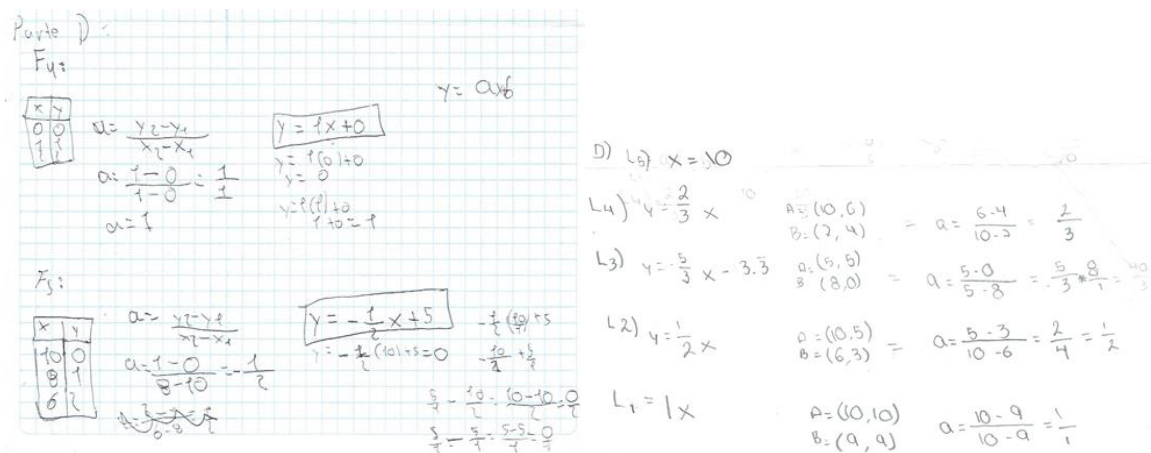 Parte D:
F4:
y = ax+b
x y
0 0
1 1
2 2
a = y2-y1 / x2-x1
a = 1-0 / 1-0 = 1/1
a = 1
y = 1x+0
y = 1(0)+0
y = 0
y = 1(1)+0
1+0 = 1
F5:
x y
10 0
8 1
6 2
a = y2-y1 / x2-x1
a = 1-0 / 8-10 = -1/2
y = -1/2 x + 5
y = -1/2 (10)+5 = 0
-1/2 (10/1) + 5
10-10/2 = 0/2
5/1 - 5/1 = 5-5/1 = 0/1
D) L5) x = 10
L4) y = 2/3 x
A = (10,6)
B = (7,4)
= a = 6-4 / 10-7 = 2/3
L3) y = -5/3 x - 3.3
A: (5,5)
B (8,0)
= a = 5-0 / 5-8 = -5/3 * 8/1 = 40/3
L2) y = 1/2 x
A = (10,5)
B = (6,3)
= a = 5-3 / 10-6 = 2/4 = 1/2
L1 = 1x
A = (10,10)
B = (9,9)
a = 10-9 / 10-9 = 1/1